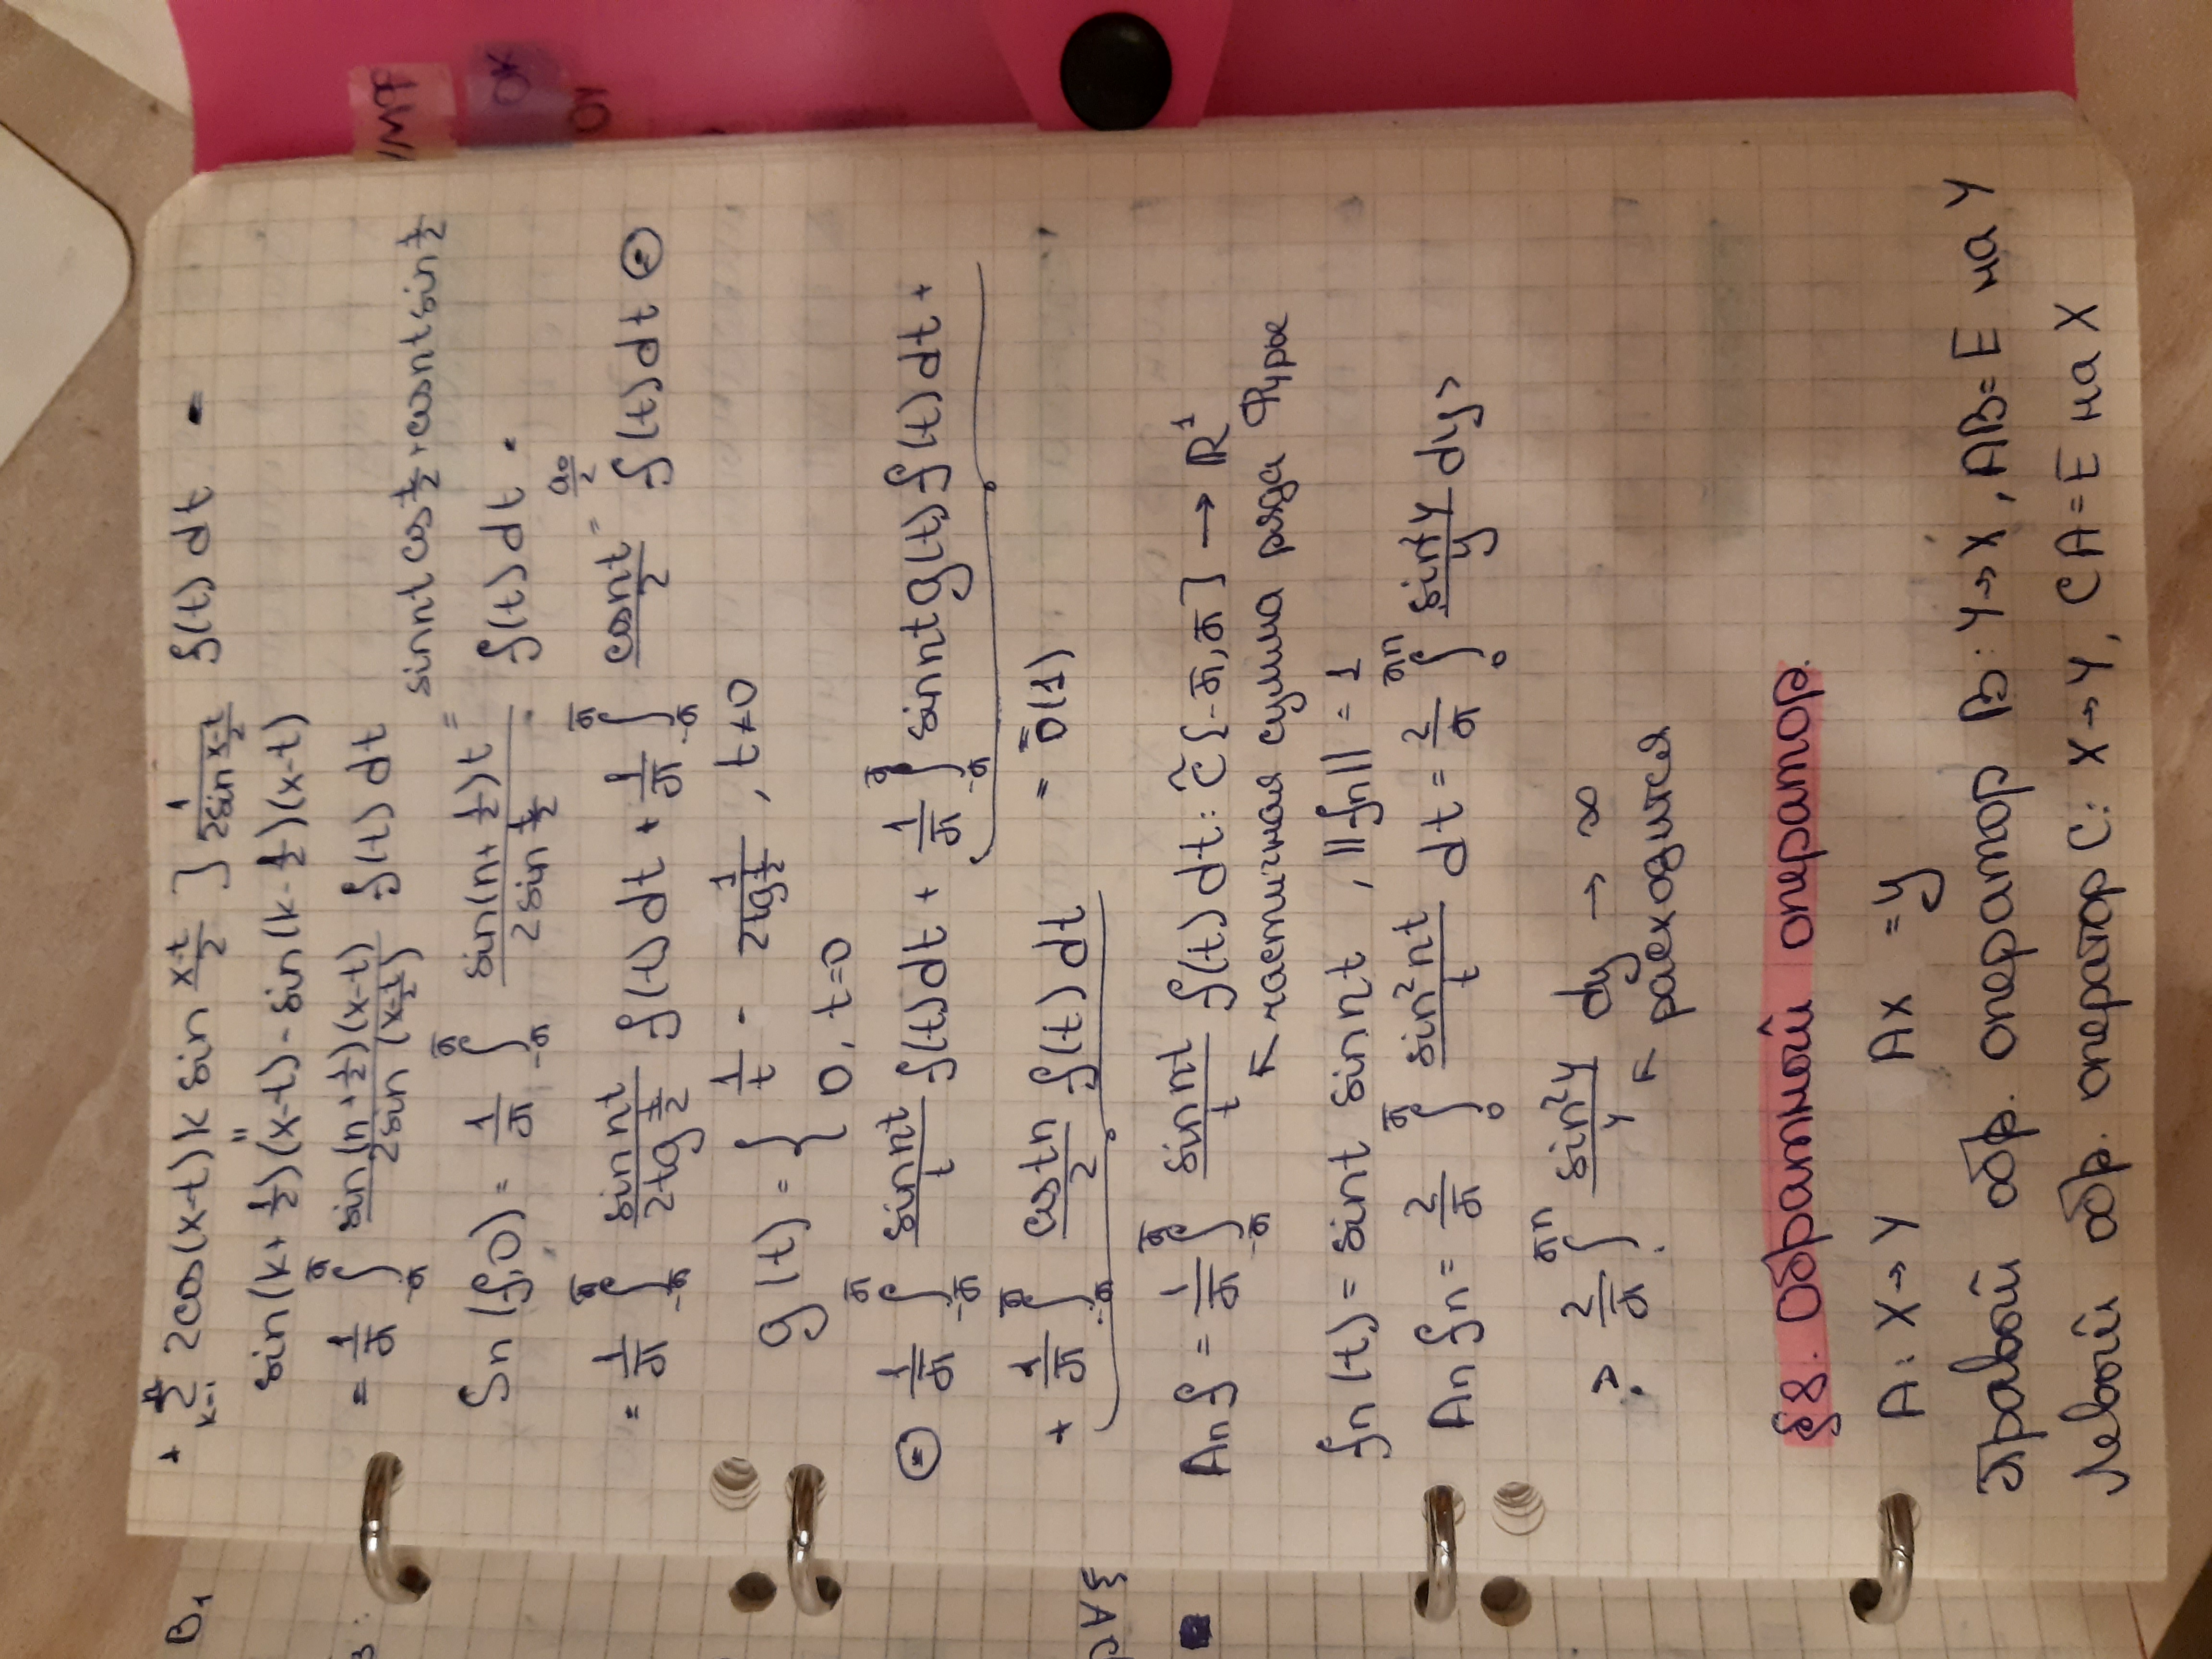 + ∑_{k=1}^{n} 2cos(x-t)k sin (x-t)/2 ] 1/(2sin (x-t)/2) f(t)dt =
sin(k+1/2)(x-t) - sin(k-1/2)(x-t)
= 1/π ∫_{-π}^{π} sin(n+1/2)(x-t)/(2sin((x-t)/2)) f(t)dt
sin nt cos t/2 + cos nt sin t/2
Sn(f,0) = 1/π ∫_{-π}^{π} sin(n+1/2)t/(2sin t/2) f(t)dt =
a₀/2
= 1/π ∫_{-π}^{π} sin nt/(2tg t/2) f(t)dt + 1/π ∫_{-π}^{π} cos nt/2 f(t)dt ⊜
g(t) = { 1/t - 1/(2tg t/2), t≠0
0, t=0
⊜ 1/π ∫_{-π}^{π} sin nt/t f(t)dt + 1/π ∫_{-π}^{π} sin nt g(t) f(t)dt +
+ 1/π ∫_{-π}^{π} cos tn/2 f(t)dt = ō(1)
An f = 1/π ∫_{-π}^{π} sin nt/t f(t)dt: C̃[-π,π] → ℝ¹
↖ частичная сумма ряда Фурье
fn(t) = sint sin nt, ||fn|| = 1
An fn = 2/π ∫_{0}^{π} sin² nt/t dt = 2/π ∫_{0}^{πn} sin² y/y dy >
> 2/π ∫^{πn} sin² y/y dy → ∞
↖ расходится
§8. Обратный оператор.
A: X→Y Ax = y
Правый обр. оператор B: Y→X, AB=E на Y
Левый обр. оператор C: X→Y, CA=E на X
IMP
OK
01
B₁